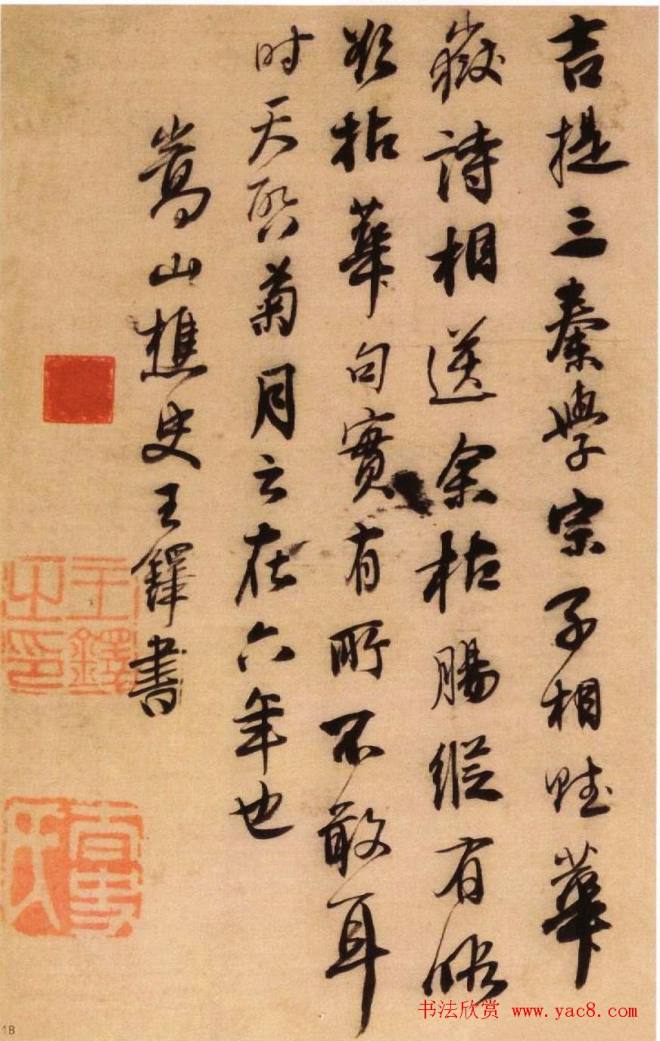 吉提三秦學宗子相賦華
嶽詩相送余枯腸縱有
欲拈華句實有所不敢耳
时天啓菊月云在六年也
嵩山樵史王鐸書
王鐸之印
书法欣赏 www.yac8.com
18